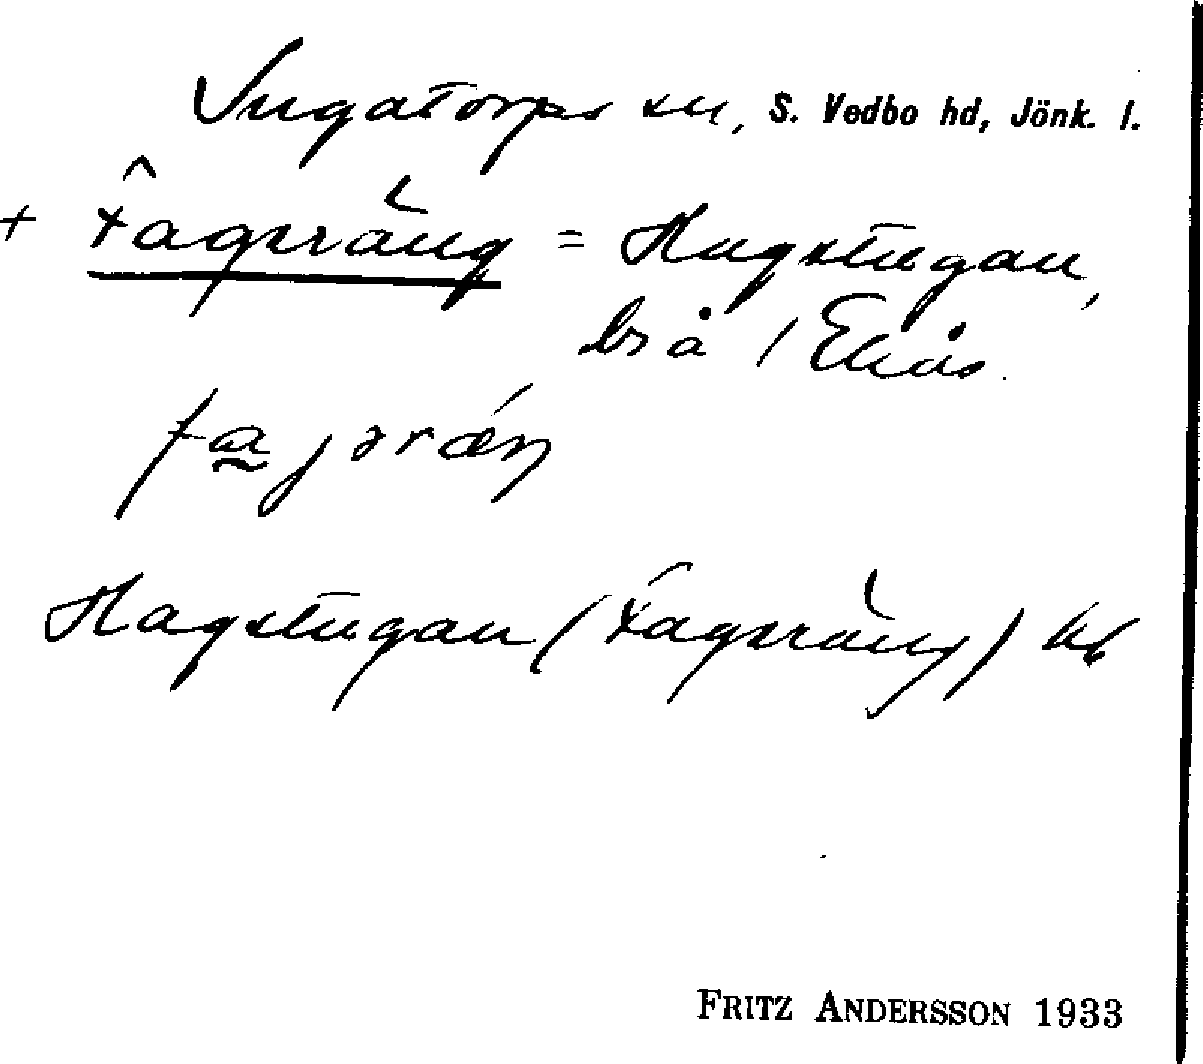 Ingatorps sn, S. Vedbo hd, Jönk. l.
+ Fageräng = Hagstugan,
bs å / Ekås.
fajəræŋ
Hagstugan (Fageräng) hf
FRITZ ANDERSSON 1933